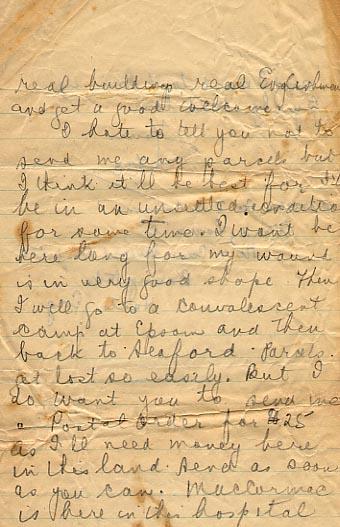 real buildings real Englishmen
and get a good welcome
I hate to tell you not to
send me any parcels but
I think it'll be best for I'll
be in an unsettled condition
for some time. I won't be
here long for my wound
is in very good shape. Then
I will go to a convalescent
camp at Epsom and then
back to Seaford. Parcels
get lost so easily. But I
do want you to send me
a Postal Order for $25
as I'll need money here
in this land. Send as soon
as you can. MacCormac
is here in this hospital